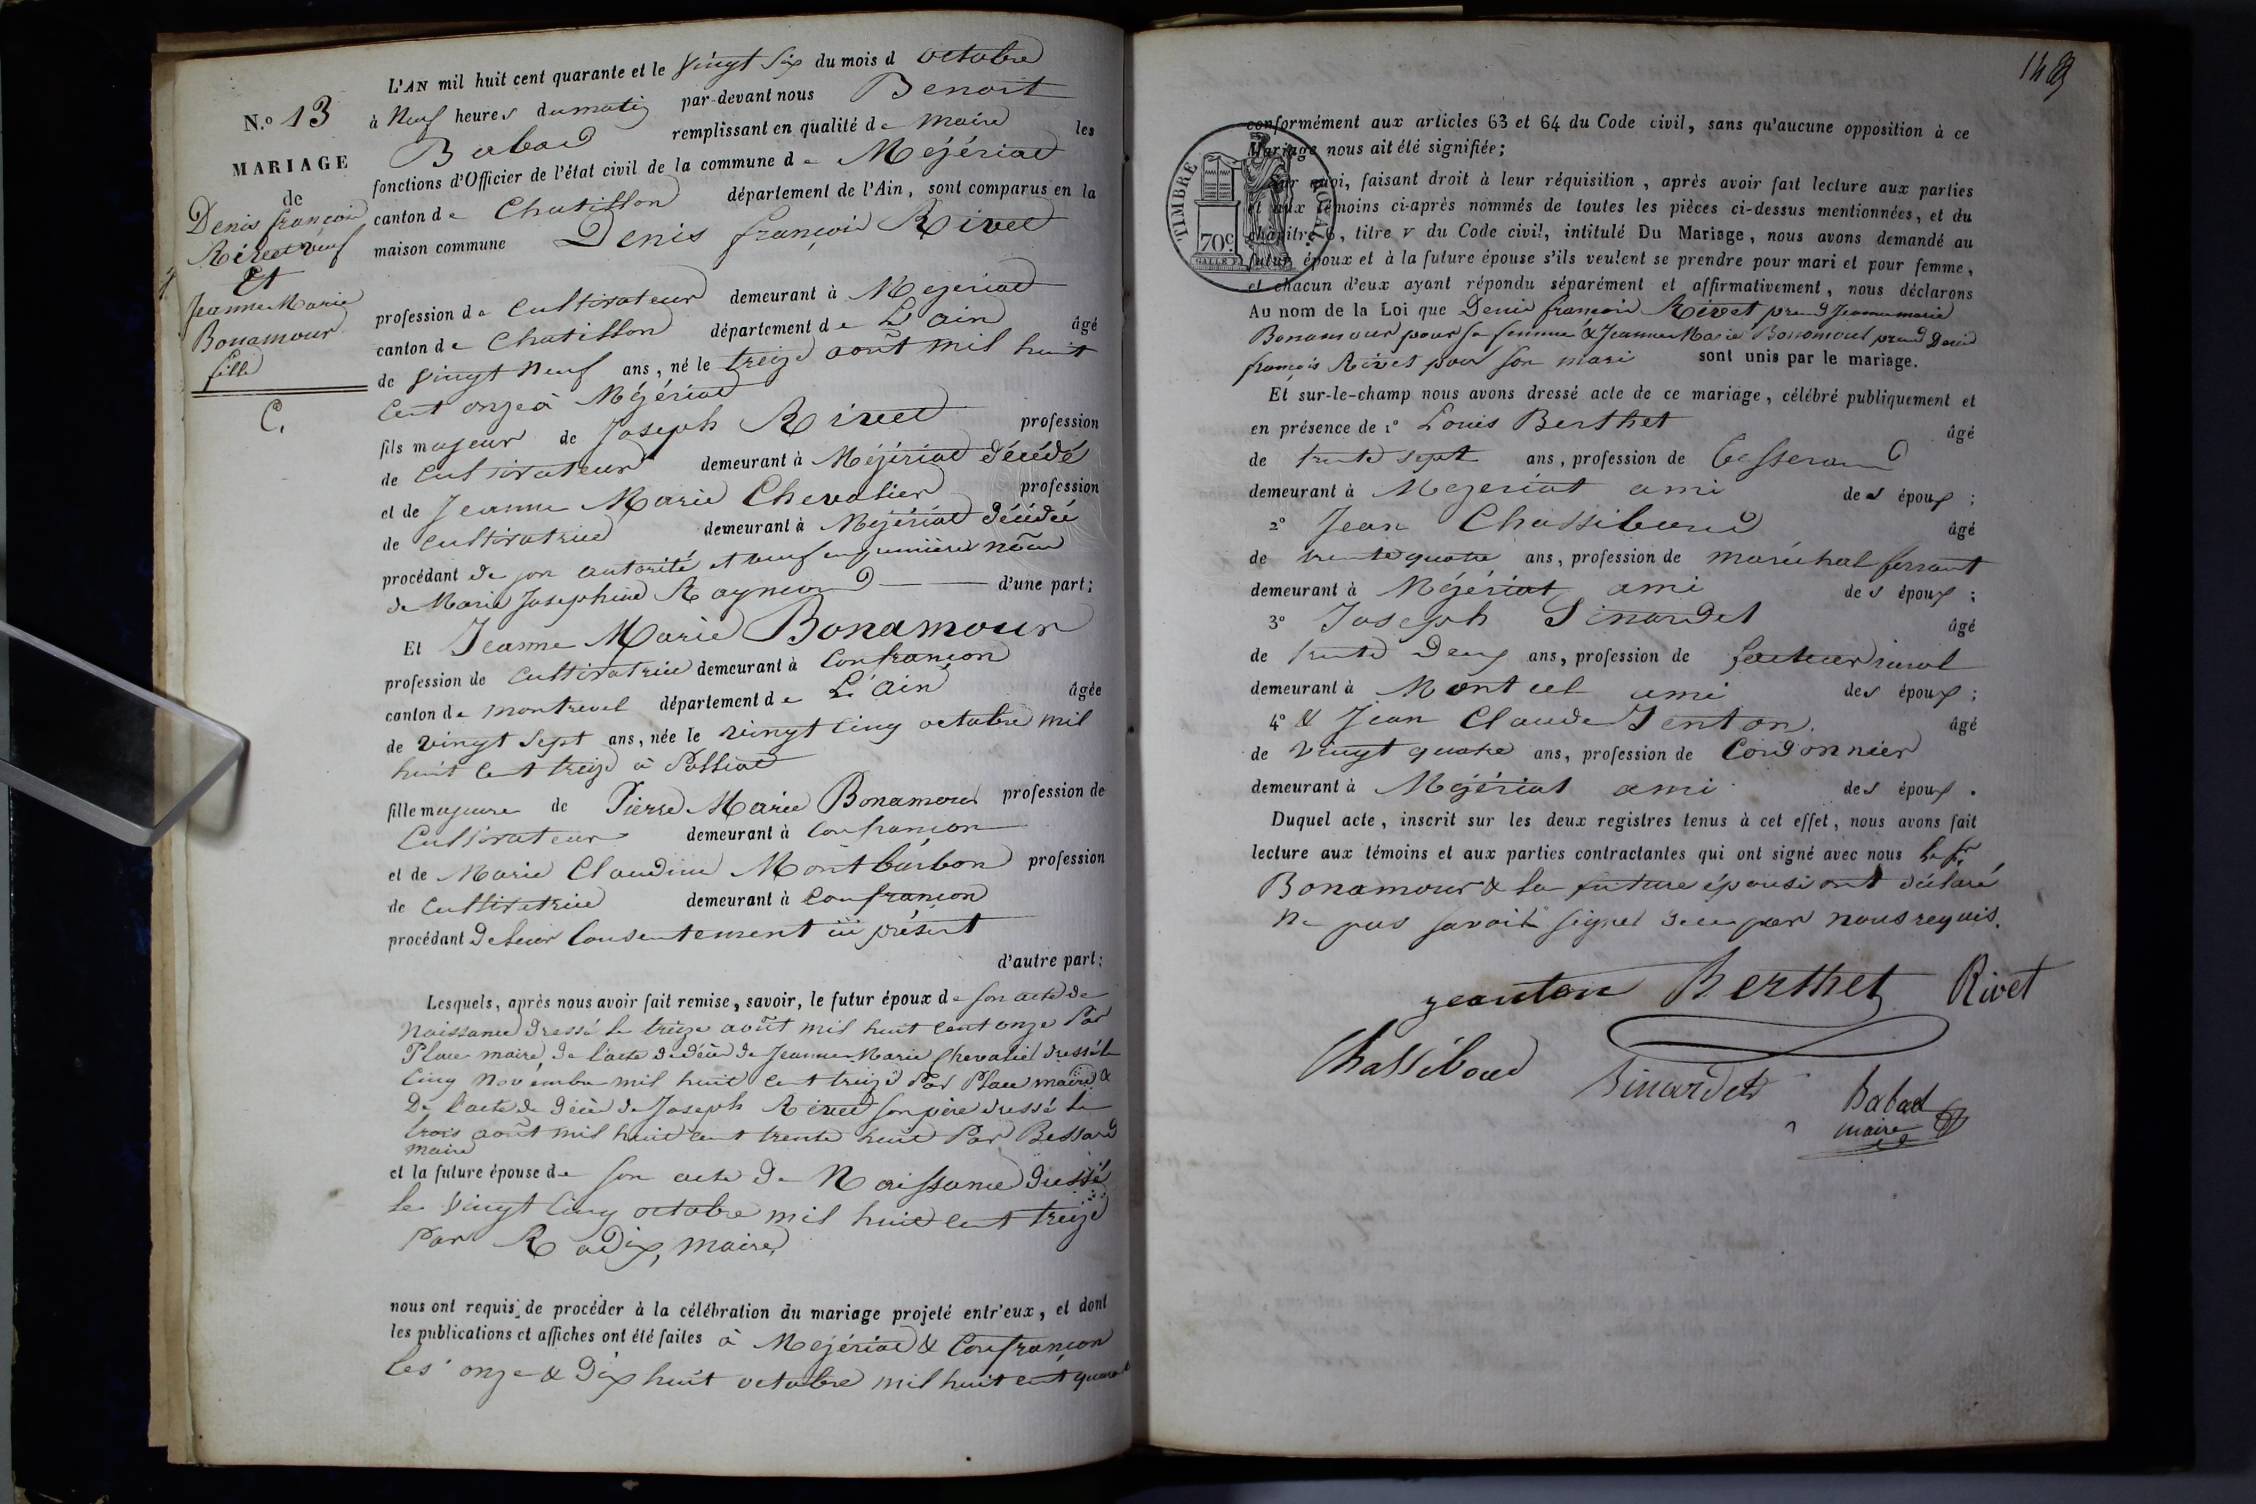 N.o 13
MARIAGE
de
Denis françois
Rivet veuf
Et
Jeanne Marie
Bonamour
fille
C.
L'AN mil huit cent quarante et le vingt Six du mois d octobre
à Neuf heures du matin par-devant nous Benoit
Babad remplissant en qualité de maire les
fonctions d'Officier de l'état civil de la commune de Mézériat
canton de Chatillon département de l'Ain, sont comparus en la
maison commune Denis françois Rivet
profession de Cultivateur demeurant à Mezeriat
canton de Chatillon département de L'ain âgé
de vingt Neuf ans, né le treize août mil huit
Cent onze à Mézériat
fils majeur de Joseph Rivet profession
de Cultivateur demeurant à Mézériat décédé
et de Jeanne Marie Chevalier profession
de Cultivatrice demeurant à Mézériat décédée
procédant de son autorité et veuf en premières nôces
de Marie Josephine Raymond d'une part;
Et Jeanne Marie Bonamour
profession de Cultivatrice demeurant à Confrançon
canton de montrevel département de L'ain âgée
de vingt Sept ans, née le vingt Cinq octobre mil
huit Cent treize à Polliat
fille majeure de Pierre Marie Bonamour profession de
Cultivateur demeurant à Confrançon
et de Marie Claudine Montbarbon profession
de Cultivatrice demeurant à Confrançon
procédant de leur Consentement ici présent
d'autre part;
Lesquels, après nous avoir fait remise, savoir, le futur époux de son acte de
Naissance dressé le treize août mil huit Cent onze Par
Place maire, de l'acte de décès de Jeanne Marie Chevalier dressé le
Cinq Novembre mil huit Cent treize Par Place maire &
De l'acte de décès de Joseph Rivet son père dressé le
trois août mil huit cent trente huit Par Bessard
maire
et la future épouse de son acte de Naissance dressé
le vingt Cinq octobre mil huit cent treize
Par Radix, maire,
nous ont requis de procéder à la célébration du mariage projeté entr'eux, et dont
les publications et affiches ont été faites à Mézériat & Confrançon
les onze & Dix huit octobre mil huit cent quarante
148
TIMBRE ROYAL
70c
conformément aux articles 63 et 64 du Code civil, sans qu'aucune opposition à ce
Mariage nous ait été signifiée;
Sur quoi, faisant droit à leur réquisition, après avoir fait lecture aux parties
et aux témoins ci-après nommés de toutes les pièces ci-dessus mentionnées, et du
chapitre 6, titre v du Code civil, intitulé Du Mariage, nous avons demandé au
futur époux et à la future épouse s'ils veulent se prendre pour mari et pour femme,
et chacun d'eux ayant répondu séparément et affirmativement, nous déclarons
Au nom de la Loi que Denis françois Rivet prend Jeanne marie
Bonamour pour sa femme & Jeanne Marie Bonamour prend Denis
françois Rivet pour son mari sont unis par le mariage.
Et sur-le-champ nous avons dressé acte de ce mariage, célébré publiquement et
en présence de 1o Louis Berthet âgé
de trente sept ans, profession de tesserand
demeurant à Mezeriat ami des époux;
2o Jean Chassiboud âgé
de trente quatre ans, profession de maréchal ferrant
demeurant à Mézériat ami des époux;
3o Joseph Sinardet âgé
de trente Deux ans, profession de facteur rural
demeurant à Montcet ami des époux;
4o & Jean Claude Jenton. âgé
de vingt quatre ans, profession de Cordonnier
demeurant à Mézériat ami des époux.
Duquel acte, inscrit sur les deux registres tenus à cet effet, nous avons fait
lecture aux témoins et aux parties contractantes qui ont signé avec nous le sr
Bonamour & la future épouse ont déclaré
Ne pas savoir signer de ce par nous requis.
jeanton Berthet Rivet
Chassiboud Sinardet Babad
maire